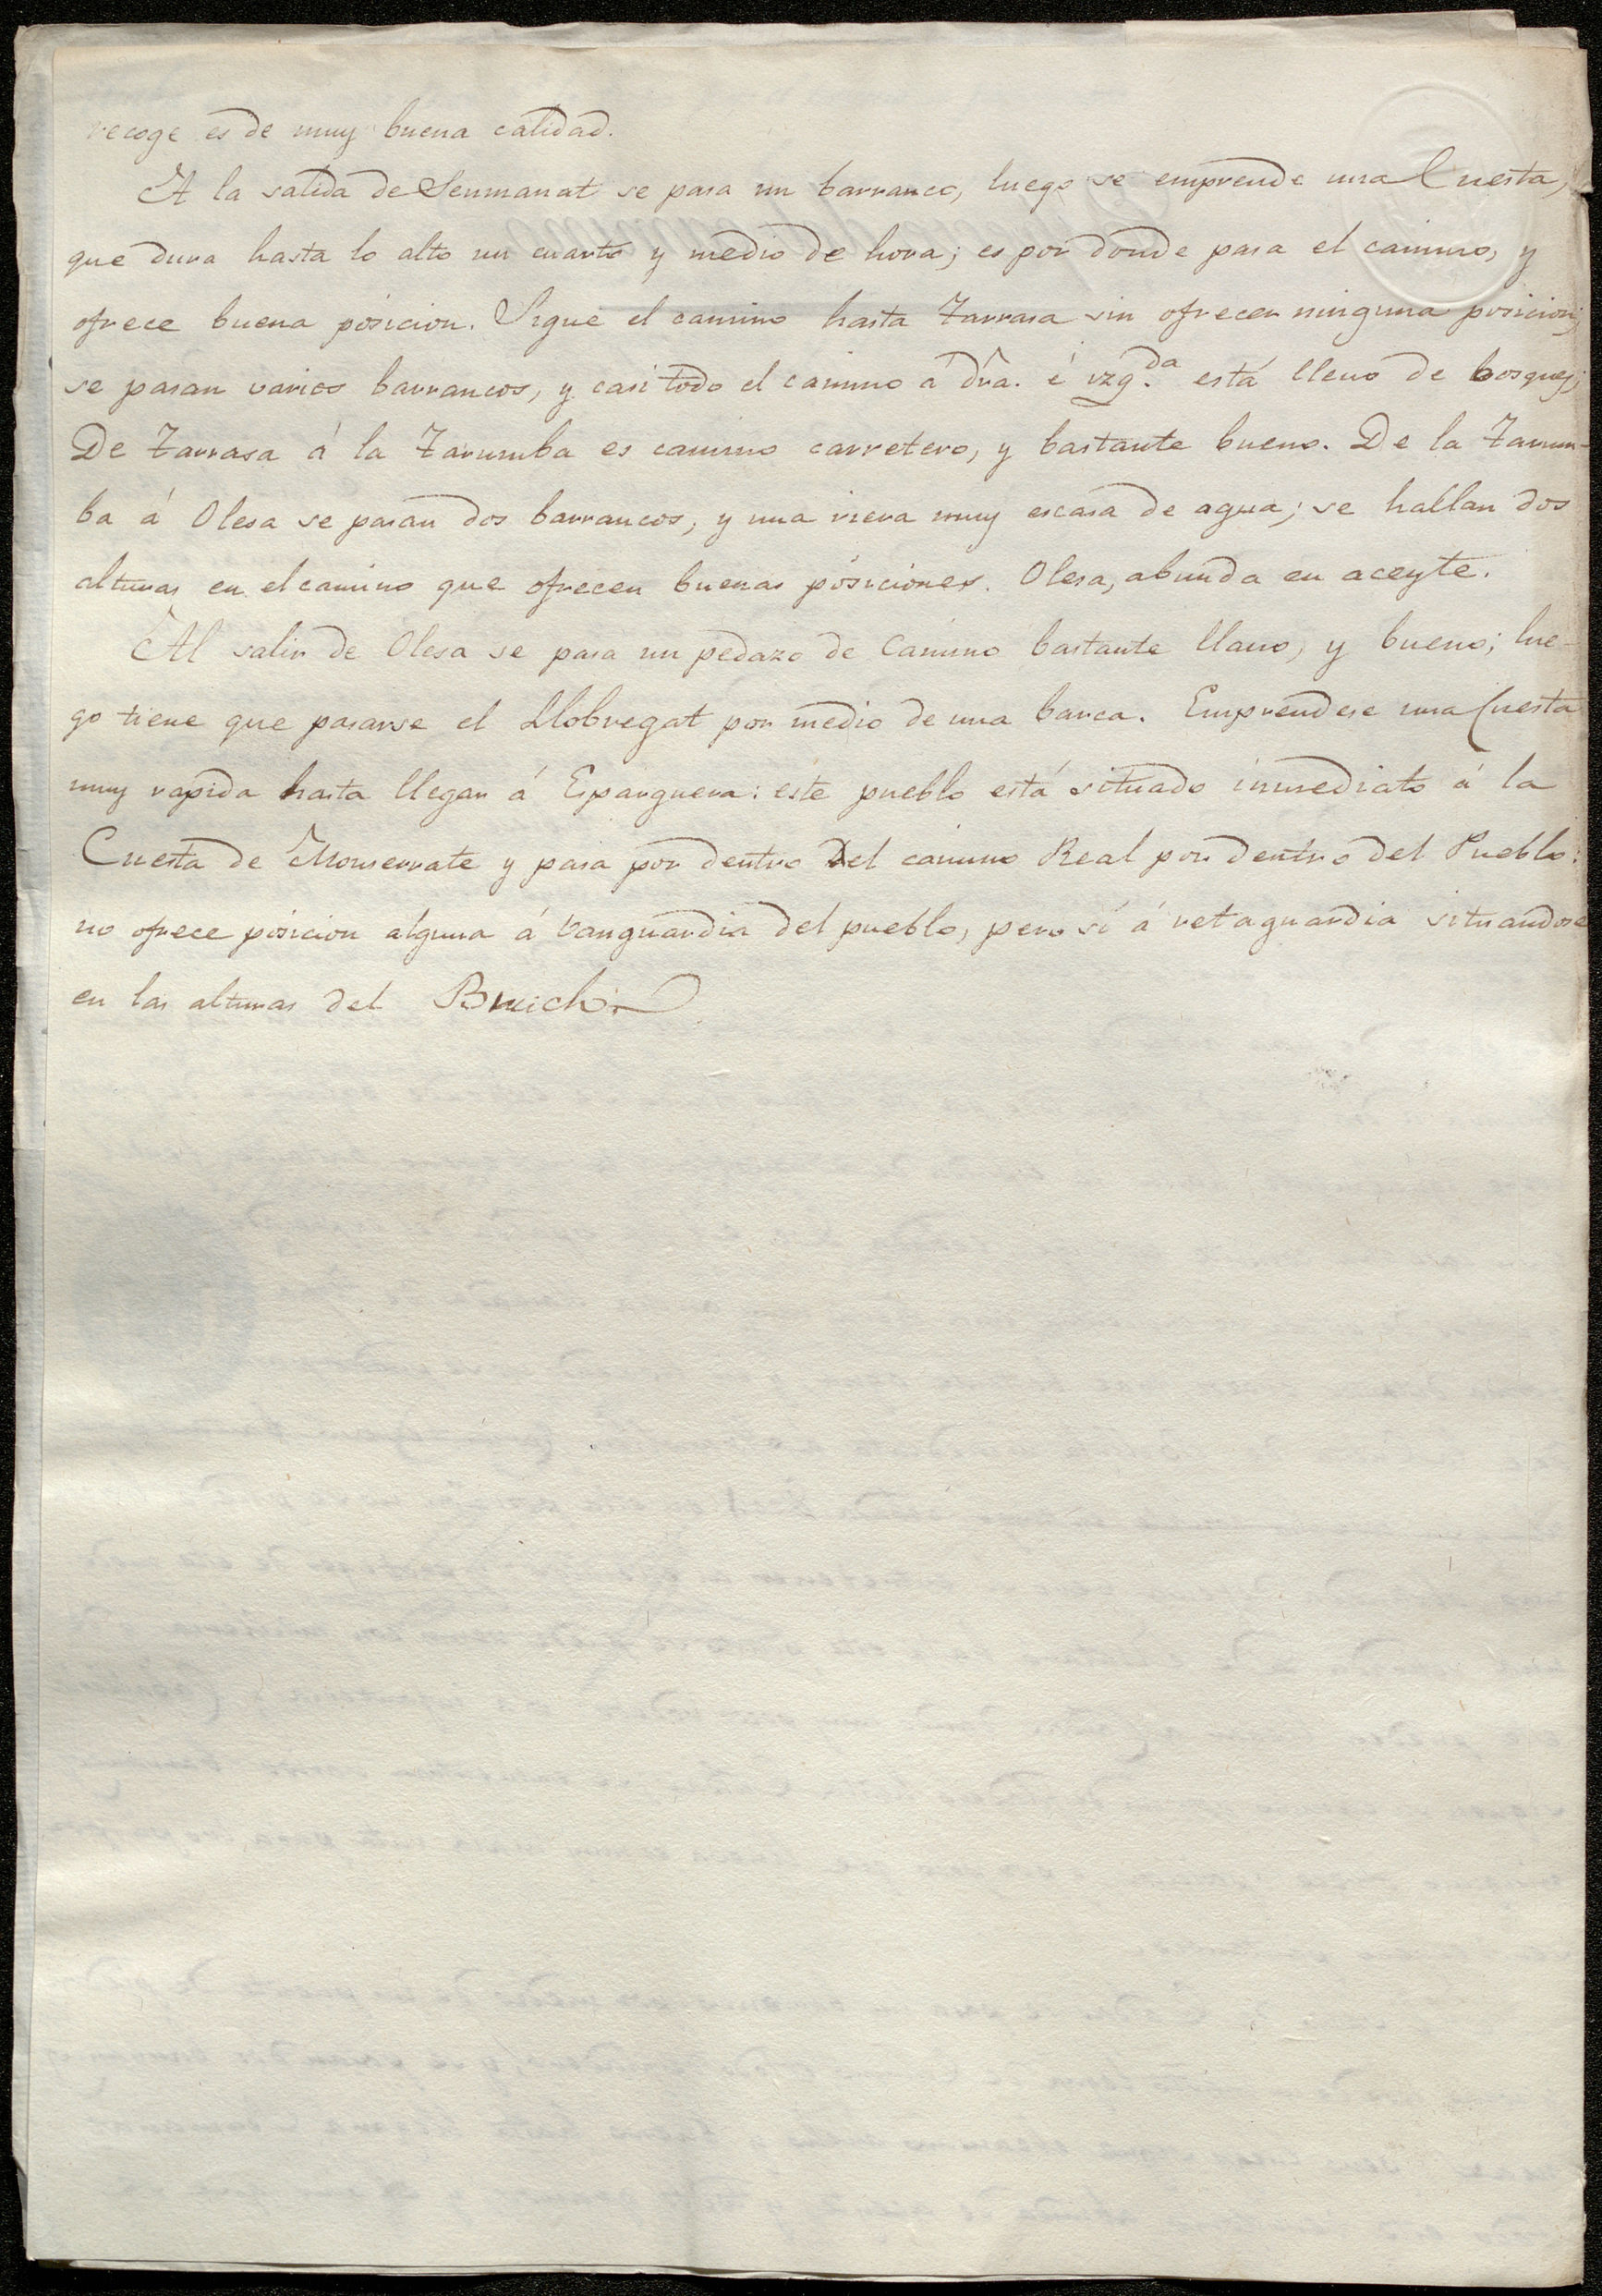 recoge es de muy buena calidad.
A la salida de Senmanat se pasa un barranco, luego se emprende una Cuesta,
que dura hasta lo alto un cuarto y medio de hora; es por donde pasa el camino, y
ofrece buena posicion. Sigue el camino hasta Tarrasa sin ofrecer ninguna posicion;
se pasan varios barrancos, y casi todo el camino á dr̃a. é yzq.da está lleno de bosques;
De Tarrasa á la Tarumba es camino carretero, y bastante bueno. De la Tarum-
ba á Olesa se pasan dos barrancos, y una riera muy escasa de agua; se hallan dos
alturas en el camino que ofrecen buenas posiciones. Olesa, abunda en aceyte.
Al salir de Olesa se pasa un pedazo de Camino bastante llano, y bueno; lue-
go tiene que pasarse el Llobregat por medio de una barca. Emprendese una Cuesta
muy rapida hasta llegar á Esparguera: este pueblo está situado inmediato á la
Cuesta de Monserrate y pasa por dentro del camino Real por dentro del Pueblo:
no ofrece posicion alguna á vanguardia del pueblo, pero sí á retaguardia situandose
en las alturas del Bruich.